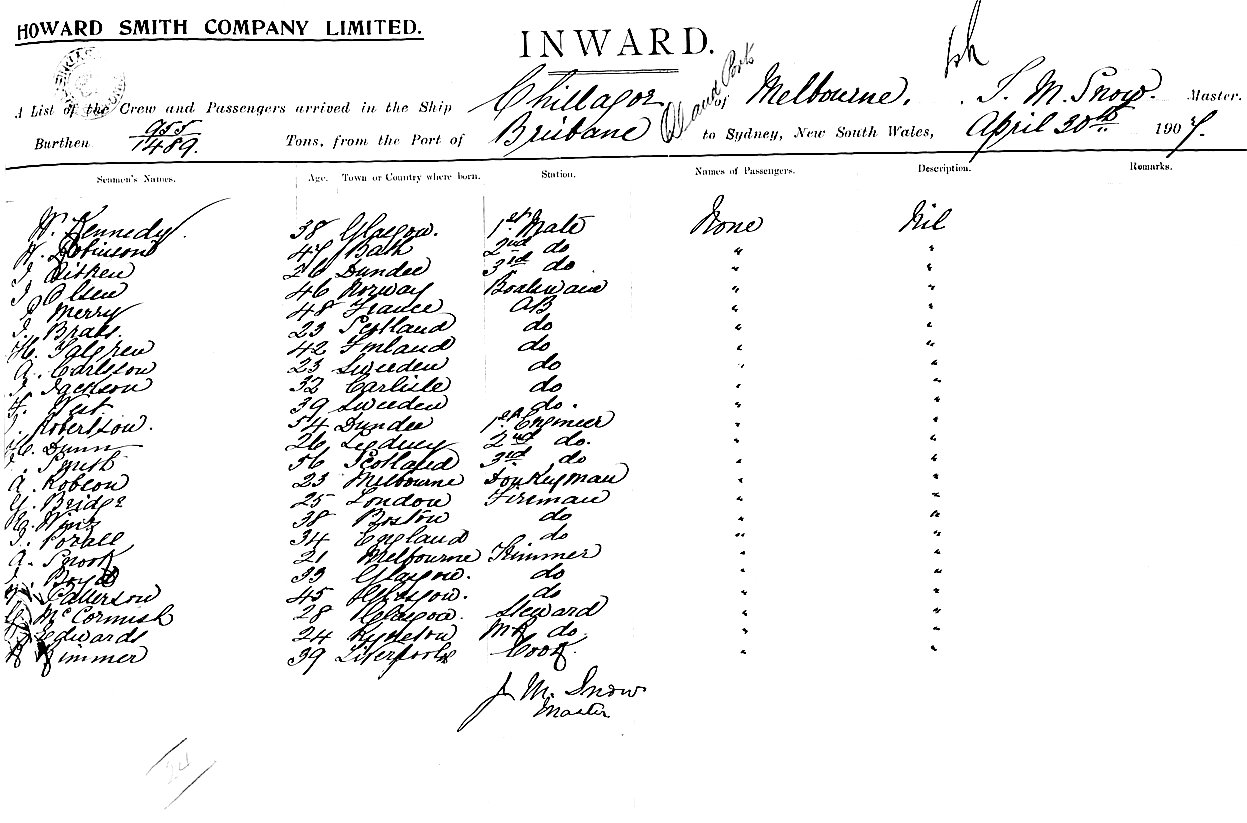 HOWARD SMITH COMPANY LIMITED.
INWARD.
A List of the Crew and Passengers arrived in the Ship Chillagoe of Melbourne, Master.
Burthen 955/1489. Tons, from the Port of Brisbane and Ports to Sydney, New South Wales, April 20th 1907.
Seamen's Names. Age. Town or Country where born. Station. Names of Passengers. Description. Remarks.
W. Kennedy 38 Glasgow. 1st Mate None Nil
Robinson 47 Bath 2nd do " "
J. Aitken 26 Dundee 3rd do " "
J. Olsen 46 Norway Boatswain " "
P. Merry 48 France AB " "
23 Scotland do " "
H. 42 Finland do " "
A. Carlsson 23 Sweden do " "
J. Jackson 32 Carlisle do " "
West 39 Sweden do. " "
Robertson. 54 Dundee 1st Engineer " "
H. Dunn 26 Sydney 2nd do. " "
56 Scotland 3rd do " "
A. Robson 23 Melbourne Donkeyman " "
G. Bridge 25 London Fireman " "
38 Boston do " "
34 England do " "
A. Snook 21 Melbourne Trimmer " "
Boyd 33 Glasgow. do " "
Patterson 45 Glasgow. do " "
G. McCormish 28 Glasgow. Steward " "
Edwards 24 Kyneton do " "
Rimmer 39 Liverpool Cook " "
J. M. Snow
Master
24